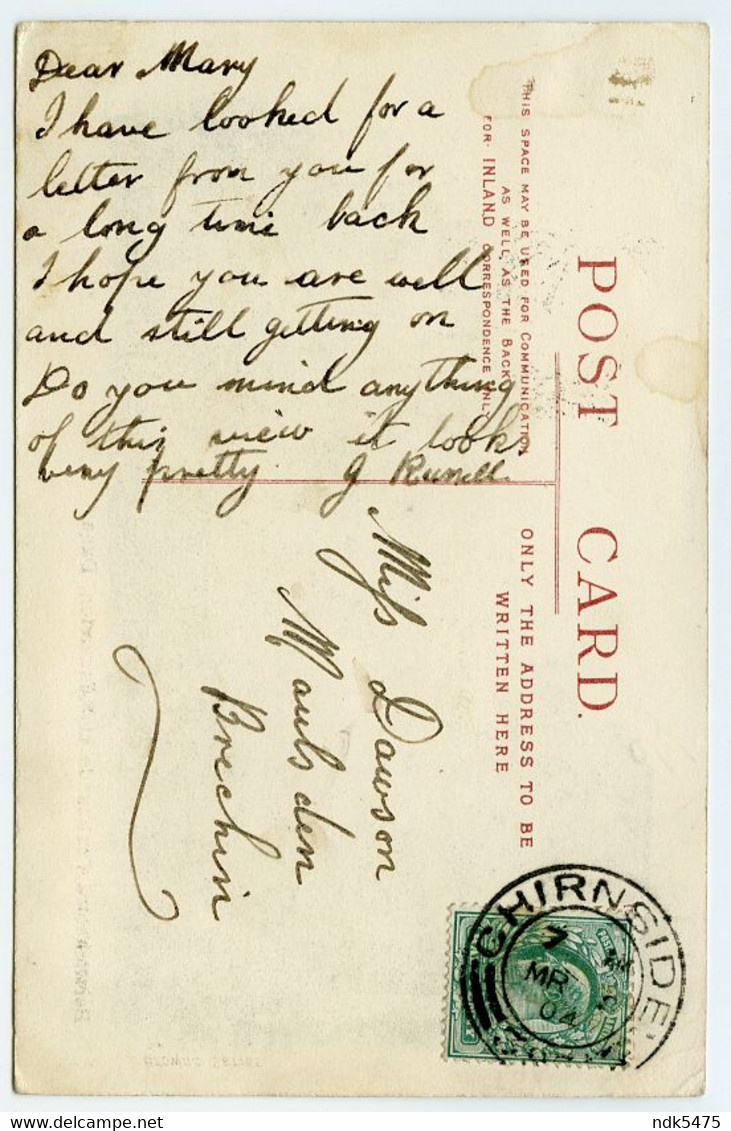 Dear Mary
I have looked for a
letter from you for
a long time back
I hope you are well
and still getting on
Do you mind anything
of this view it looks
very pretty. J
THIS SPACE MAY BE USED FOR COMMUNICATION
AS WELL AS THE BACK
FOR INLAND CORRESPONDENCE ONLY
POST CARD.
ONLY THE ADDRESS TO BE
WRITTEN HERE
Miss Dawson
Maulsden
Brechin
CHIRNSIDE
7
MR
04
ndk5475